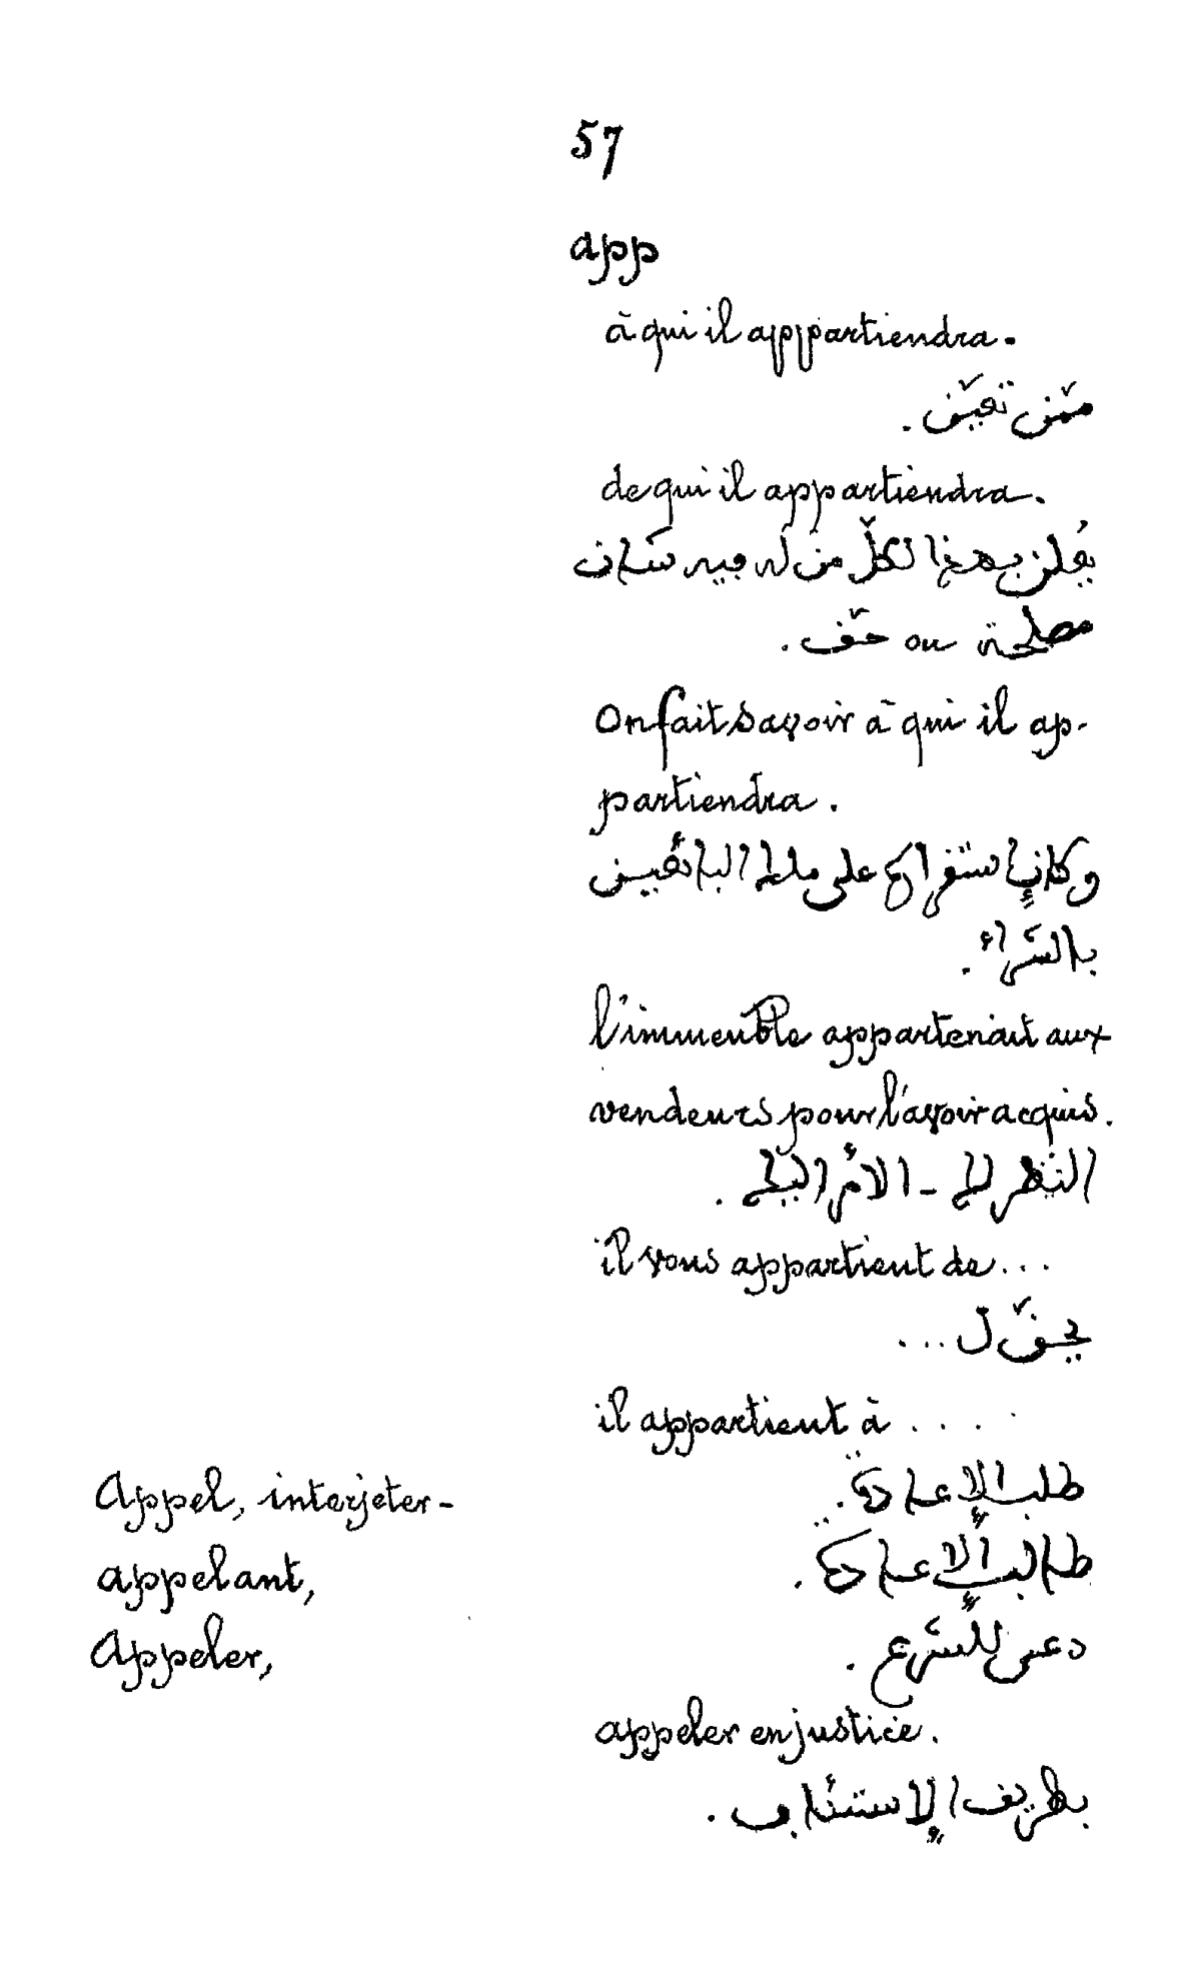 57
app
à qui il appartiendra.
ممّن تعيّن.
de qui il appartiendra.
يُعلن بهذا لكلّ من له فيه شان
مصلحة ou حقّ.
On fait savoir à qui il ap-
partiendra.
على البائعين
بالشراء.
l'immeuble appartenait aux
vendeurs pour l'avoir acquis.
النظر لك - الأمر إليك.
il vous appartient de...
يحقّ ل ...
il appartient à ....
Appel, interjeter - طلب الإعادة.
appelant, طالب الإعادة.
Appeler, دعى للشرع.
appeler en justice.
بطريق الإستئناف.